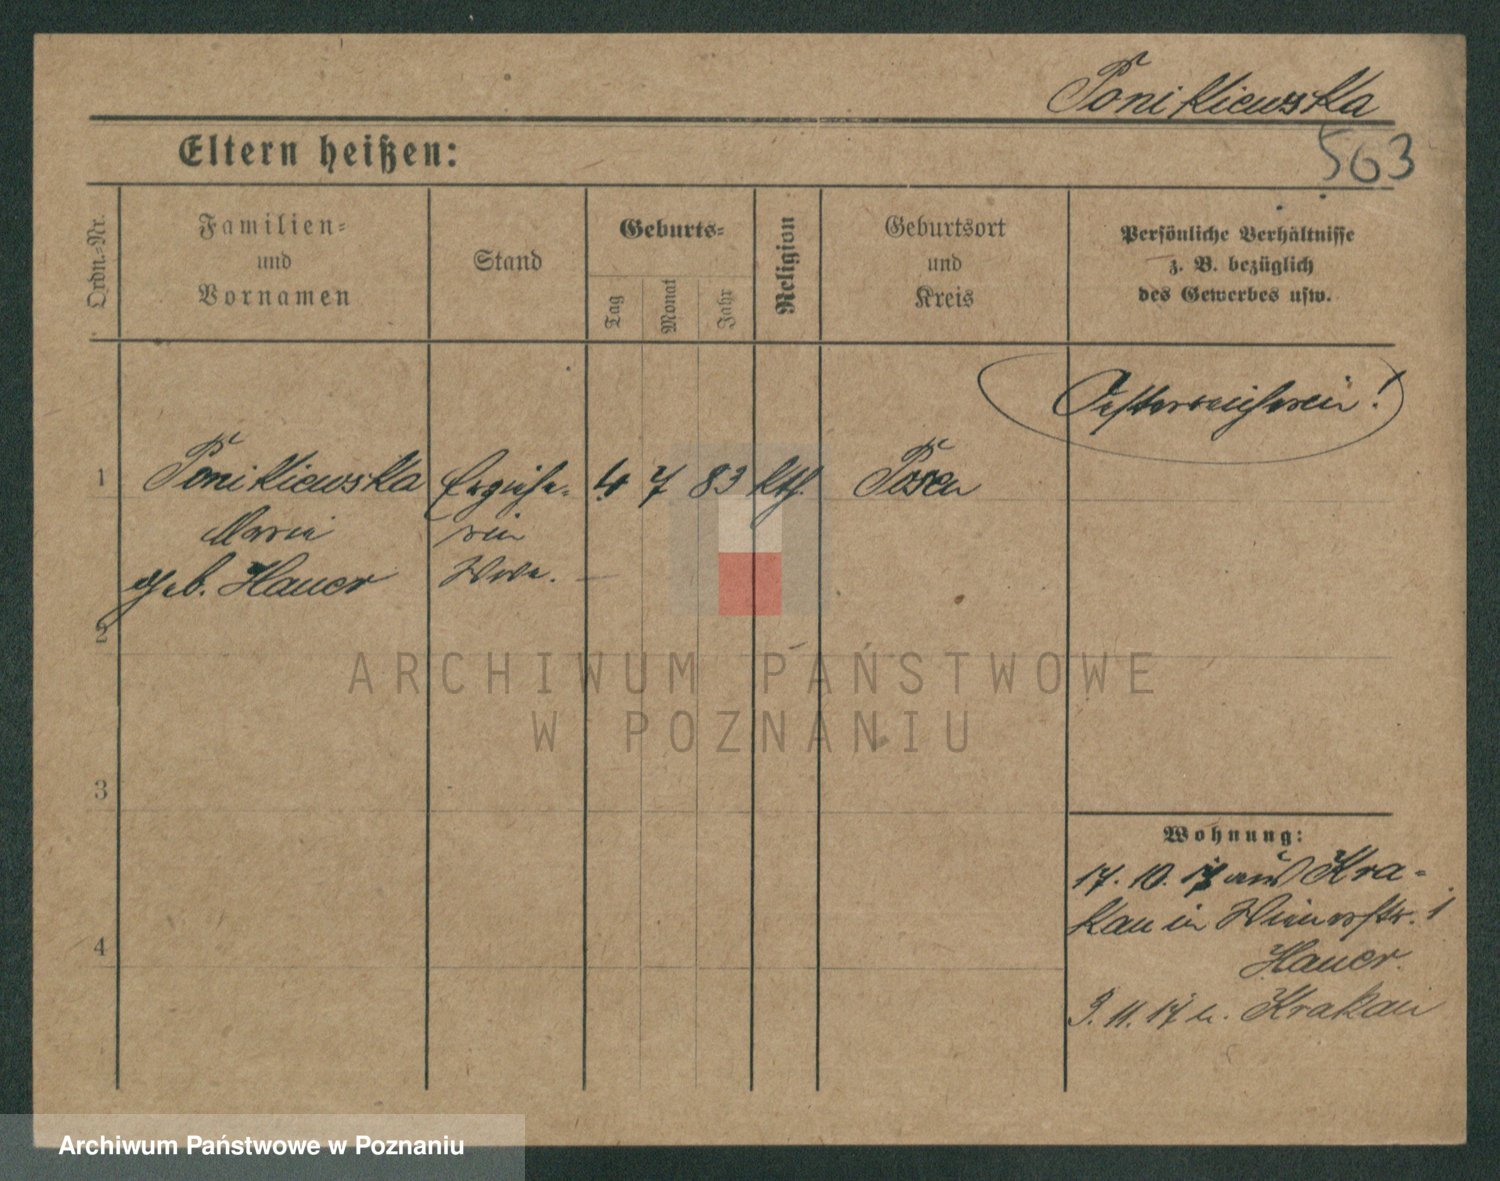 Ponikiewska
563
Eltern heißen:
Ordn.-Nr.
Familien-
und
Vornamen
Stand
Geburts-
Tag
Monat
Jahr
Religion
Geburtsort
und
Kreis
Persönliche Verhältnisse
z. B. bezüglich
des Gewerbes usw.
Oesterreicherin!
1 Ponikiewska Erziehe- 4 7 83 kth. Posen
Marie rin
geb. Hauer Wwe.
2
3
4
ARCHIWUM PAŃSTWOWE
W POZNANIU
Wohnung:
17. 10. 17 aus Kra-
kau in Wienerstr. 1
Hauer.
3. 11. 17 n. Krakau
Archiwum Państwowe w Poznaniu